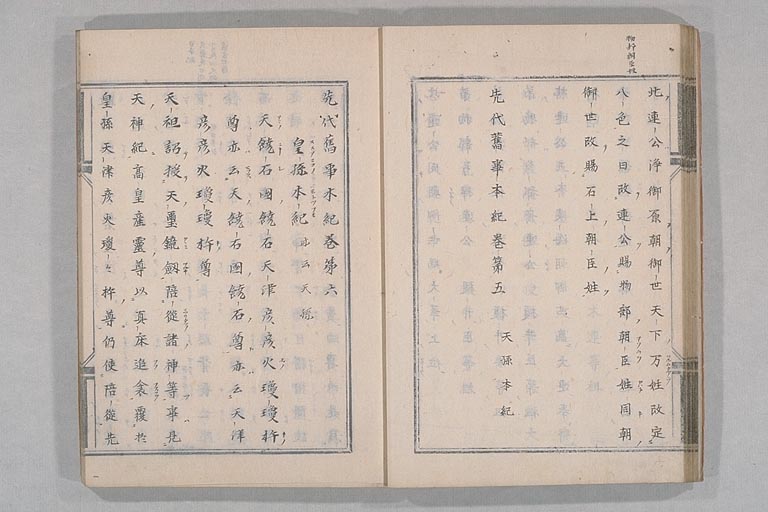 此連公浄御原朝御世天下万姓改定
八色之日改連公賜物部朝臣姓同朝
御世改賜石上朝臣姓
先代舊事本紀巻第五
天孫本紀
先代舊事本紀巻第六
皇孫本紀 亦云天孫
天饒石國饒石天津彦彦火瓊瓊杵
尊亦云天饒石國饒石尊亦云天津
彦彦火瓊瓊杵尊
天祖詔授天璽鏡劔陪従諸神等事見
天神紀高皇産霊尊以真床追衾覆於
皇孫天津彦火瓊瓊杵尊仍使陪従先